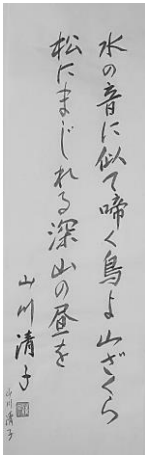 水の音に似て啼く鳥よ山ざくら
松にまじれる深山の昼を
山川清子
山川清子